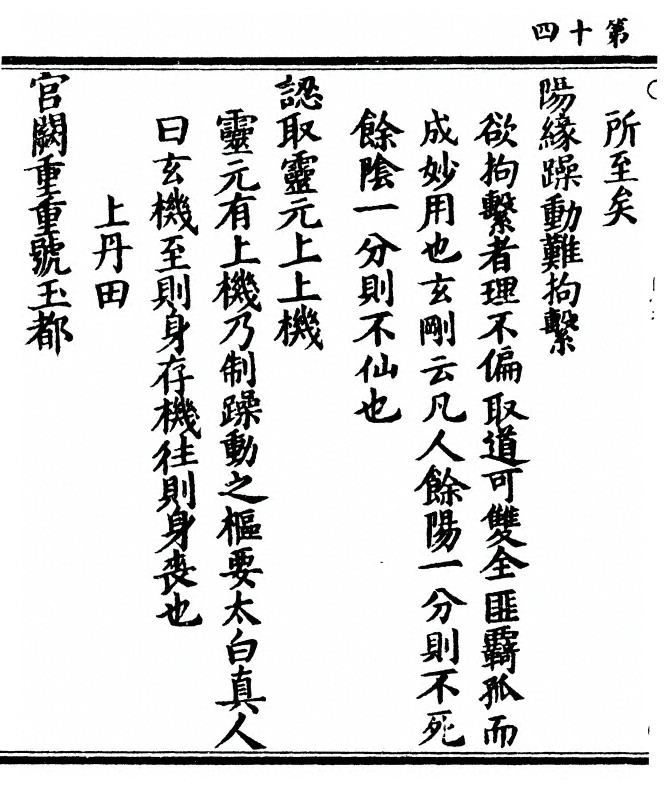 第十四
所至矣
陽緣躁動難拘繫
欲拘繫者理不偏取道可雙全匪羇孤而
成妙用也玄剛云凡人餘陽一分則不死
餘陰一分則不仙也
認取靈元上上機
靈元有上機乃制躁動之樞要太白真人
曰玄機至則身存機往則身喪也
上丹田
宫闕重重號玉都